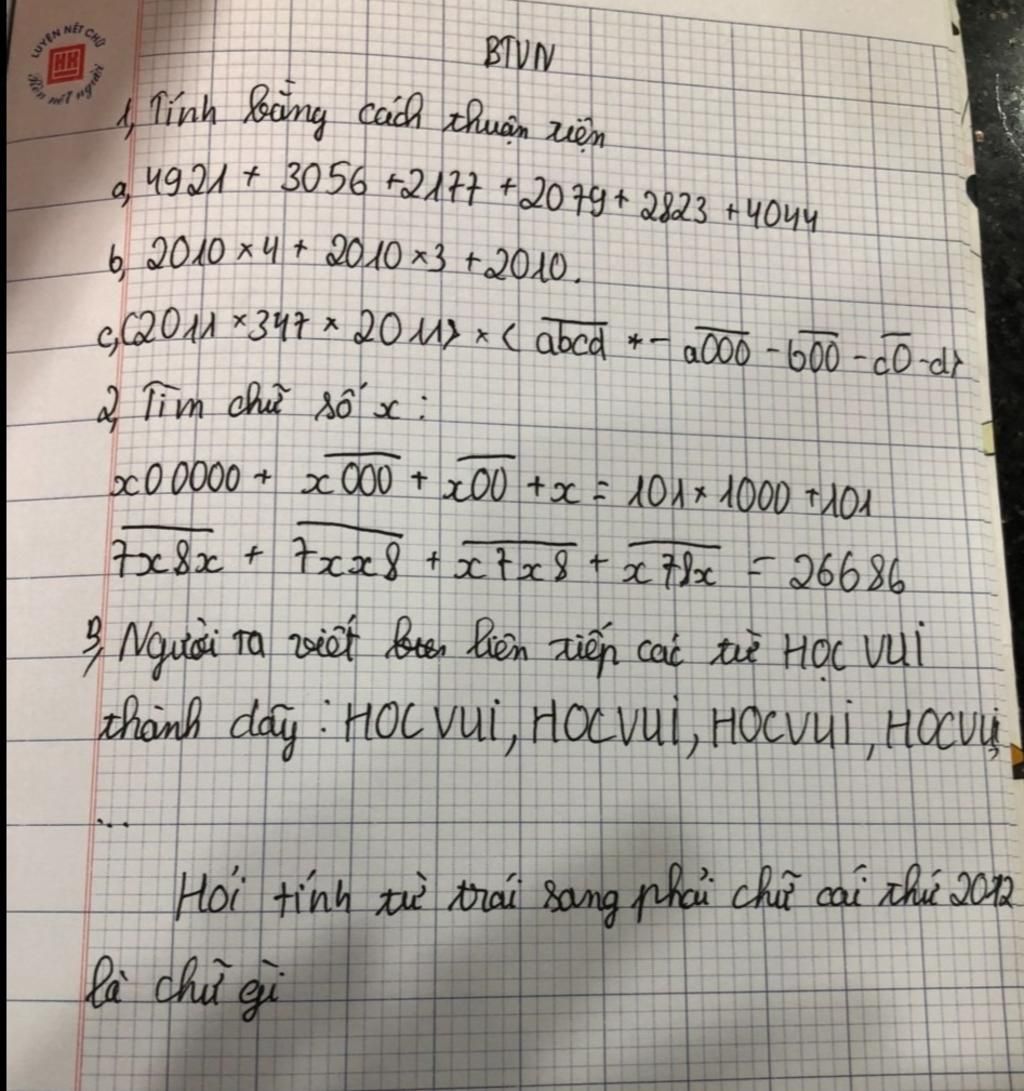 LUYỆN NÉT CHỮ
Rèn nết người
BTVN
1, Tính bằng cách thuận tiện
a, 4921 + 3056 + 2177 + 2079 + 2823 + 4044
b, 2010 × 4 + 2010 × 3 + 2010.
c, (2011 × 347 × 2011) × ( abcd + - a000 - b00 - c0 - d)
2, Tìm chữ số x :
x00000 + x000 + x00 + x = 101 × 1000 + 101
7x8x + 7xx8 + x7x8 + x78x = 26686
3, Người ra viết liên tiếp các từ HỌC VUI
thành dãy : HOCVUI, HOCVUI, HOCVUI, HOCVUI,
...
Hỏi tính từ trái sang phải chữ cái thứ 2012
là chữ gì